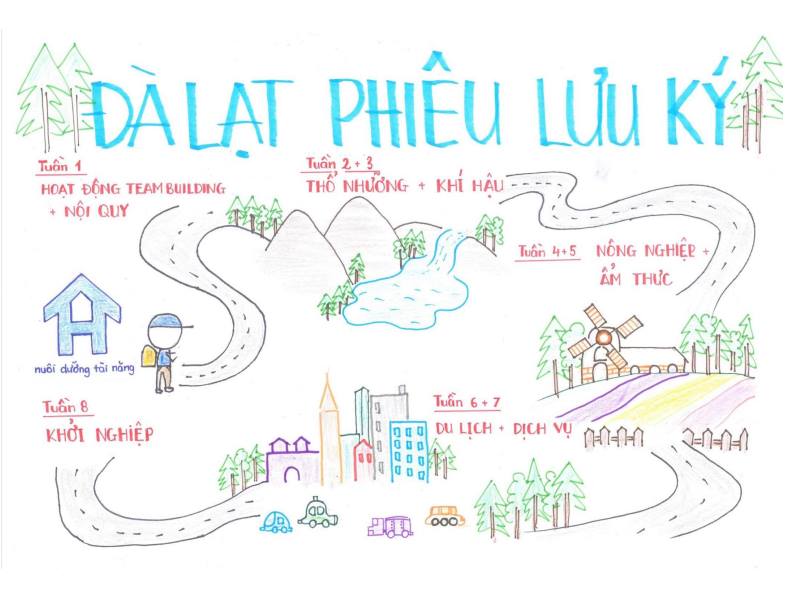 ĐÀ LẠT PHIÊU LƯU KÝ
Tuần 1
HOẠT ĐỘNG TEAM BUILDING
+ NỘI QUY
Tuần 2 + 3
THỔ NHƯỠNG + KHÍ HẬU
Tuần 4+5 NÔNG NGHIỆP +
ẨM THỰC
nuôi dưỡng tài năng
Tuần 8
KHỞI NGHIỆP
Tuần 6+7
DU LỊCH + DỊCH VỤ